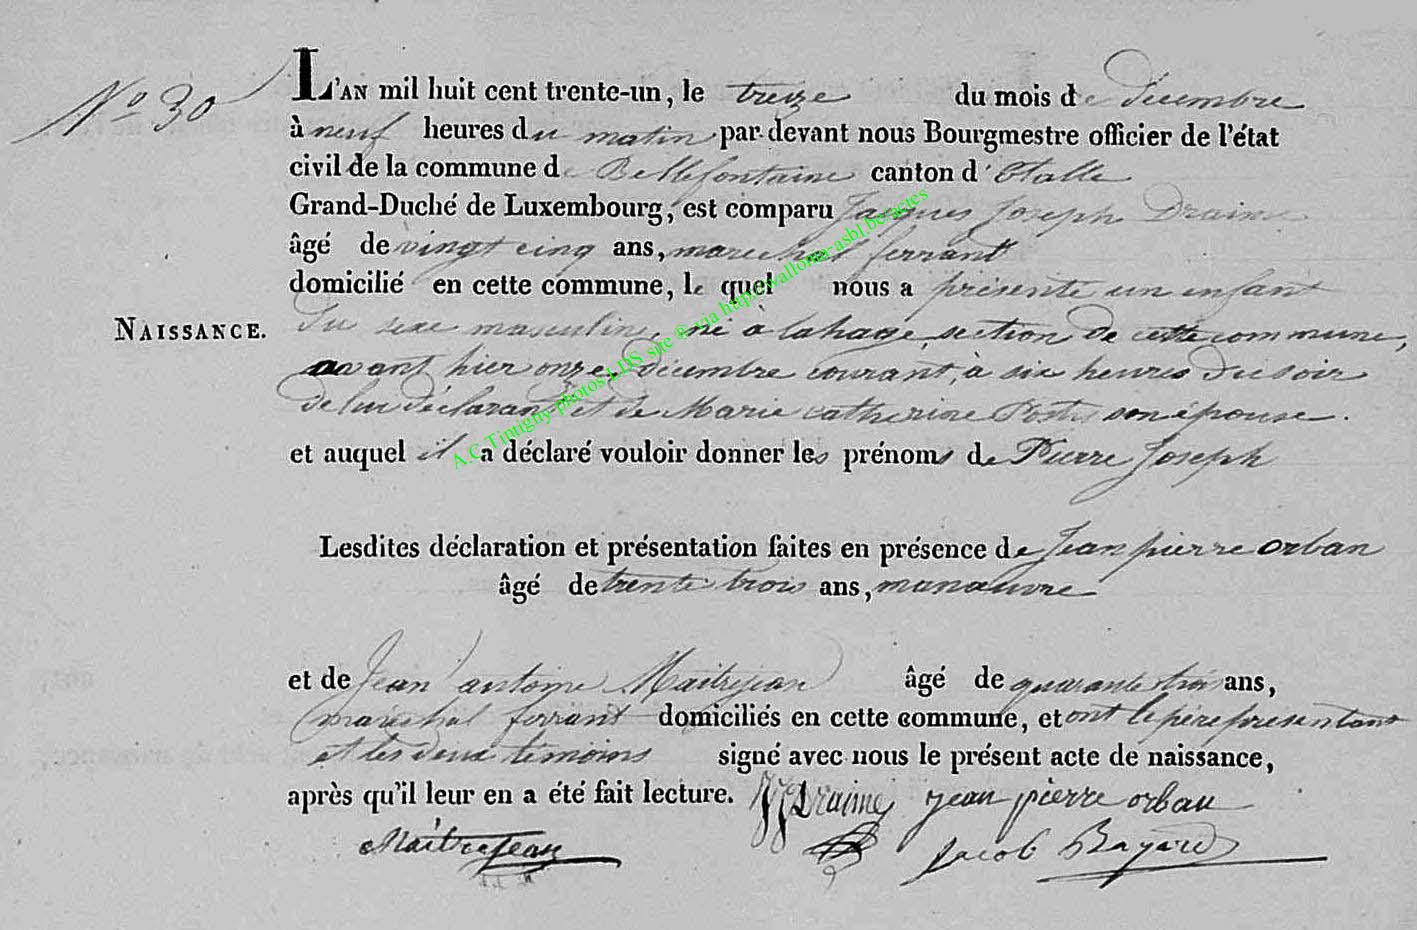 N° 30
L'AN mil huit cent trente-un, le treize du mois de decembre
à neuf heures du matin par-devant nous Bourgmestre officier de l'état
civil de la commune de Bellefontaine canton d'Etalle
Grand-Duché de Luxembourg, est comparu Jacques Joseph Draime
âgé de vingt cinq ans, marechal ferrant
domicilié en cette commune, le quel nous a présenté un enfant
NAISSANCE.
du sexe masculin, né à lahage, section de cette commune,
avant hier onze décembre courant, à six heures du soir
de lui déclarant et de Marie catherine son épouse.
et auquel il a déclaré vouloir donner les prénoms de Pierre Joseph
Lesdites déclaration et présentation faites en présence de Jean pierre orban
âgé de trente trois ans, manœuvre
et de Jean antoine Maitrejean âgé de quarante trois ans,
maréshal ferrant domiciliés en cette commune, et ont le père présentant
et les deux témoins signé avec nous le présent acte de naissance,
après qu'il leur en a été fait lecture. JJDraime jean pièrre orban
Maîtrejean Jacob Bayard
A.C.Tintigny-photos LDS site ® via http:wallonia-asbl.be/actes